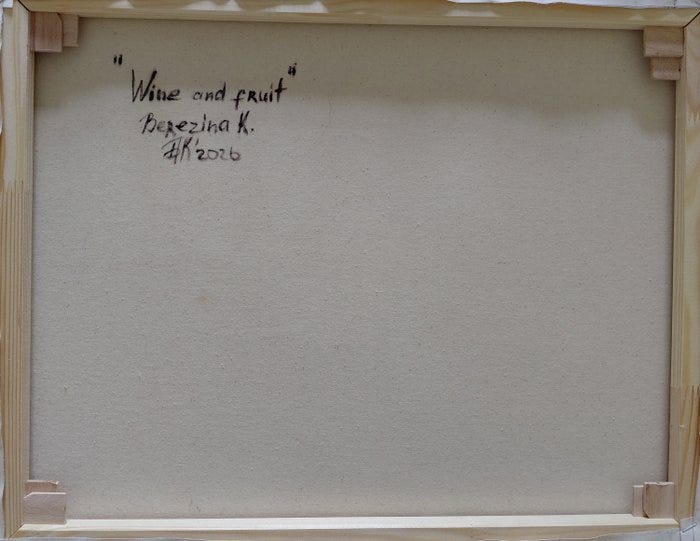 "Wine and fruit"
Berezina K.
БК'2026